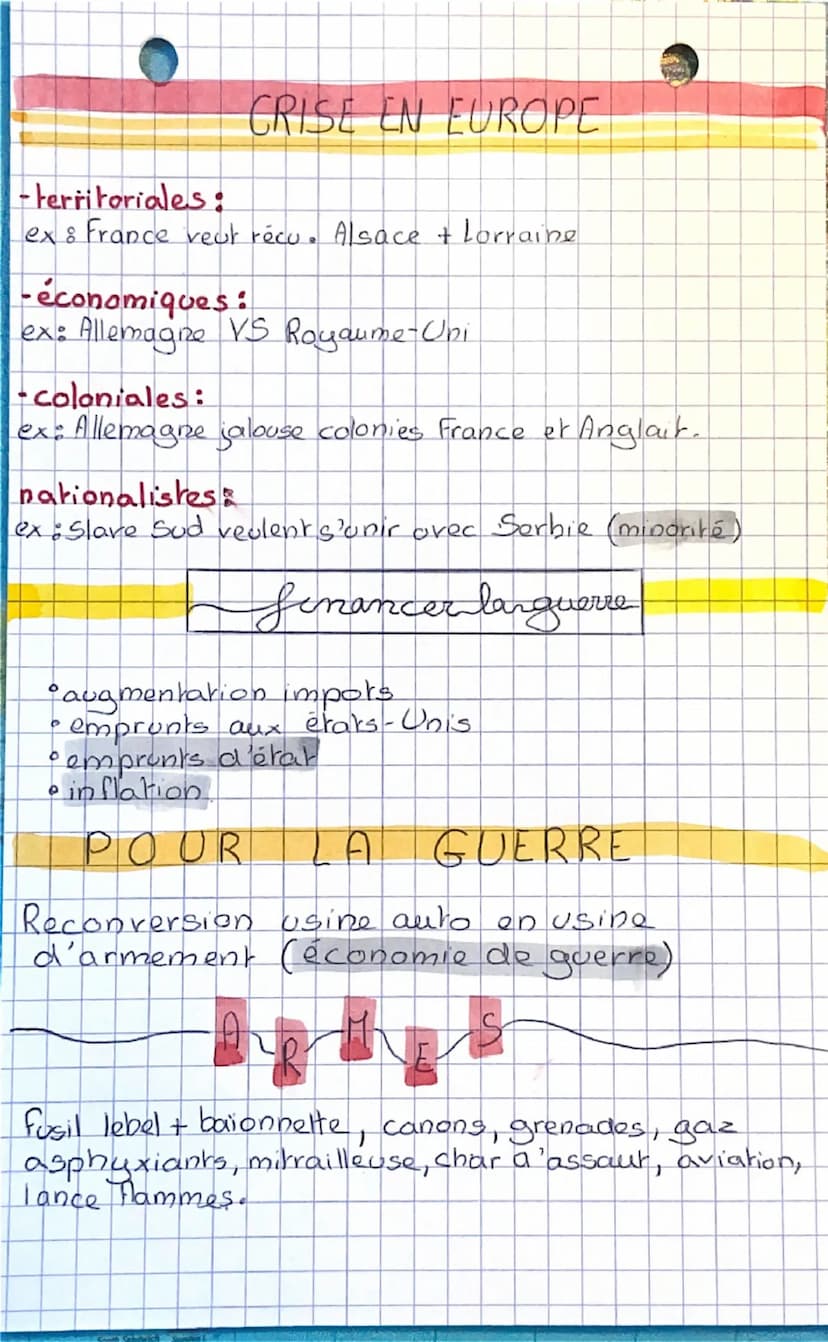 CRISE EN EUROPE
- territoriales :
ex : France veut récu. Alsace + Lorraine
- économiques :
ex : Allemagne VS Royaume-Uni
- coloniales :
ex : Allemagne jalouse colonies France et Anglait.
nationalistes :
ex : Slave Sud veulent s'unir avec Serbie (minorité)
financer la guerre
• augmentation impots
• emprunts aux états-Unis
• emprunts d'état
• inflation
POUR LA GUERRE
Reconversion usine auto en usine
d'armement (économie de guerre)
ARMES
Fusil lebel + baïonnette, canons, grenades, gaz
asphyxiants, mitrailleuse, char d'assaut, aviation,
lance flammes.